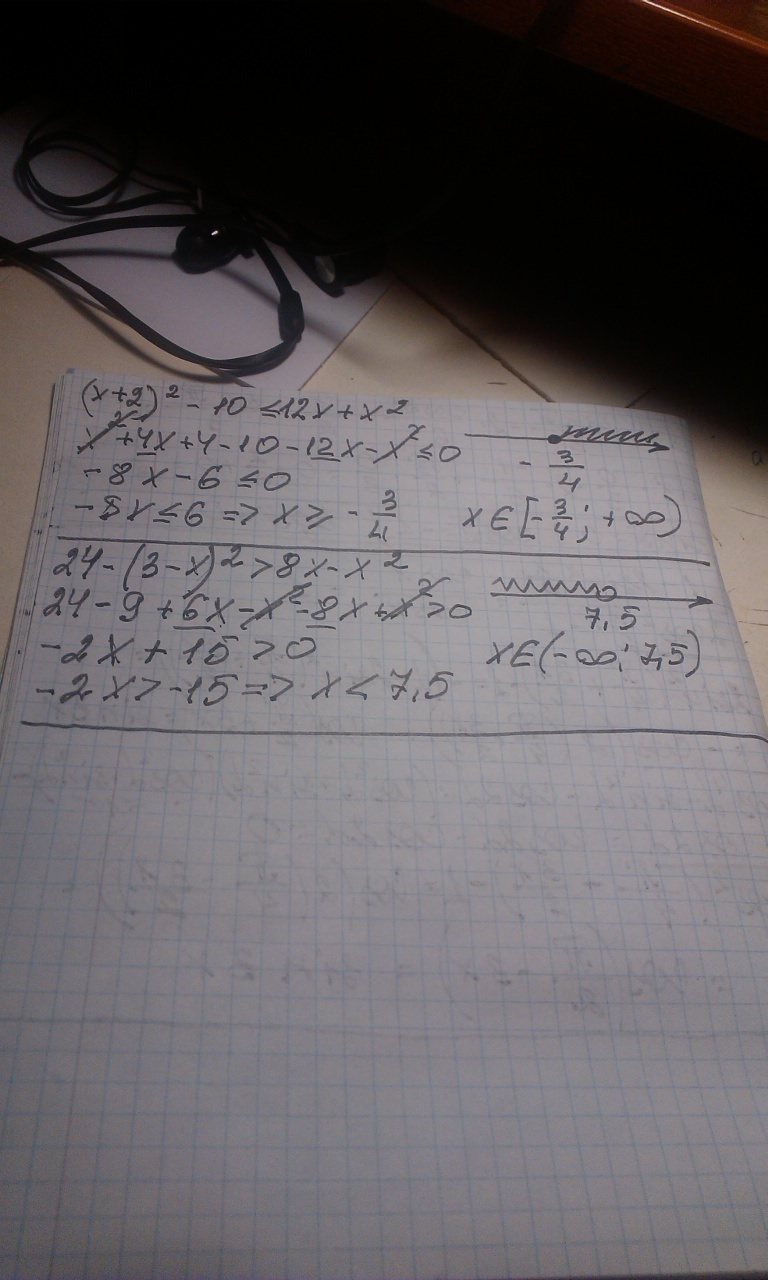 (x+2)² - 10 ≤ 12x + x²
x² + 4x + 4 - 10 - 12x - x² ≤ 0
-8x - 6 ≤ 0
-8x ≤ 6 => x ≥ - 3/4
- 3/4
x ∈ [- 3/4; +∞)
24 - (3 - x)² > 8x - x²
24 - 9 + 6x - x² - 8x + x² > 0
-2x + 15 > 0
-2x > -15 => x < 7,5
7,5
x ∈ (-∞; 7,5)